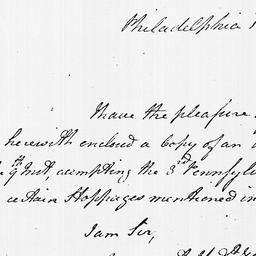 Philadelphia
have the pleasure
herewith enclosed a Copy of an
9th Inst, accepting the 3rd Pennsylv
certain Stoppages mentioned in
I am Sir,